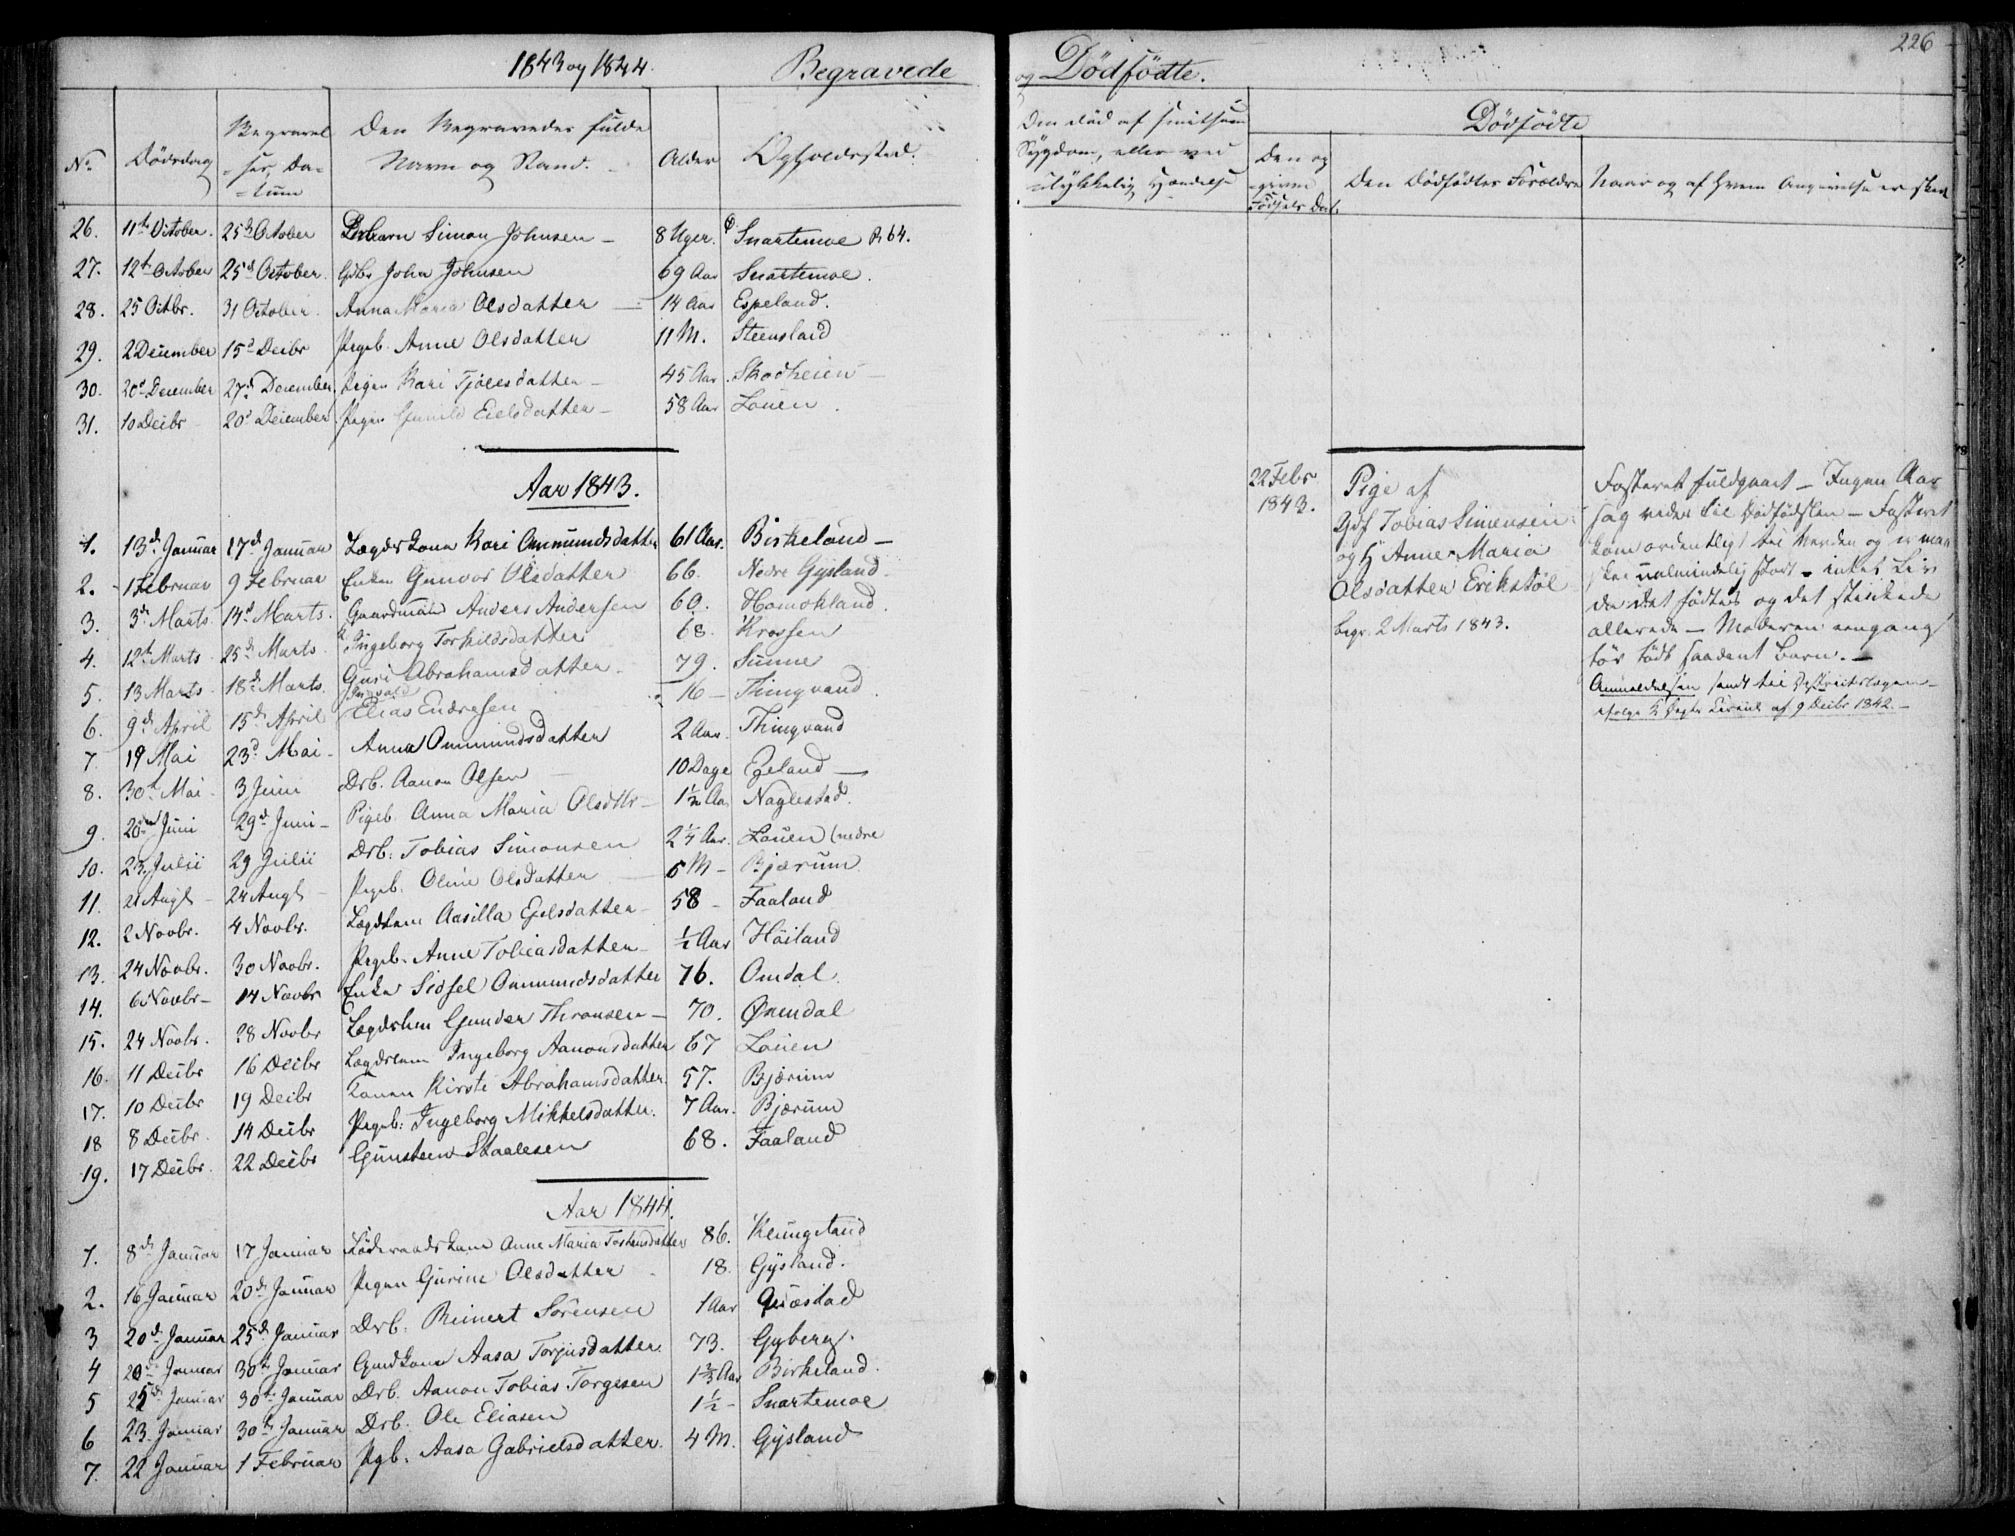 1843 og 1844.
Begravede
og Dödfödte.
226
No.
Dödsdag
Begravel
-ses, Da-
-tum
Den Begravedes fulde
Navn og Stand.
Alder
Opholdssted.
Den død af smitsum
Sygdom, eller ved
ulykkelig Hændelse
Dödfödte
Den og
-givne
Födsels Dat.
Den Dödfödtes Forældre
Naar og af hvem Angivelse er skeet
26. 11te October. 25de October Drbarn Simon Johnsen 8 Uger. Snartemoe R 64.
27. 12te October 25de October Gdbr John Johnsen 69 Aar Snartemoe.
28. 25 Octbr. 31 October Anna Maria Olsdatter 14 Aar Espeland.
29. 2 December 15de Decbr Pigeb. Anne Olsdatter 11 M. Steensland
30. 20de December 27de December Pigen Kari Tjölesdatter 45 Aar. Skodheien
31. 10 Decbr 20de December Pigen Gunild Eielsdatter 58 Aar Louen.
Aar 1843.
1. 13de Januar 17de Januar Lægdskone Kari Ommundsdatter 61 Aar. Birkeland
2. 1 Februar 9 Februar Enken Gunvor Olsdatter 66. Nedre Gysland
3. 3de Marts 14de Marts. Gaardmand Anders Andersen 60. Homokland.
4. 12te Marts 25de Marts K. Ingeborg Torkildsdatter 68. Krossen
5. 13 Marts 18de Marts. Guri Abrahamsdatter 79. Sunne
6. 9de April 15de April Elias Endresen 16 Thingvand.
7. 19 Mai 23de Mai Anna Ommundsdatter 2 Aar. Thingvand
8. 30te Mai 3 Juni Drb. Aanon Olsen 10 Dage Egeland
9. 20de Juni 29de Juni Pigeb. Anna Maria Olsdttr 1½ Aar Naglestad.
10. 23. Julii 29 Julii Drb. Tobias Simonsen 2¼ Aar. Louen (nedre
11. 21 Augt 24 Augt Pigeb. Oline Olsdatter 6 M Bjærum
12. 2 Novbr. 4 Novbr. Lægdslem Aasilla Eielsdatter 58 Faaland
13. 24 Novbr. 30 Novbr. Pigeb. Anne Tobiasdatter ½ Aar Höiland
14. 6 Novbr 14 Novbr Enke Sidsel Ommundsdatter 76. Omdal.
15. 24 Novbr. 28 Novbr Lægdslem Gunder Thronsen 70. Ömdal
16. 11 Decbr 16 Decbr Lægdslem Ingeborg Aanonsdatter 67 Louen
17. 10 Decbr 19 Decbr Konen Kirsti Abrahamsdatter. 57. Bjærum
18 8 Decbr. 14 Decbr Pigeb: Ingeborg Mikkelsdatter. 7 Aar. Bjærum
19. 17 Decbr. 22 Decbr Gunsteen Staalesen 68. Faaland
22 Febr
1843.
Pige af
Gdf Tobias Simonsen
og H Anne Maria
Olsdatter Erikstöl
begr. 2 Marts 1843.
Fosteret fuldgaaet – Ingen Aar
sag vides til Dödfödslen – Fosteret
kom ordentligt til Verden og er maa
ske ualmindelig stort – intet Liv
da det fødtes og det stinkede
allerede – Moderen eengang
för född saadant Barn. –
Anmeldelsen sendt til Districtslægen
ifölge af 9 Decbr 1842. –
Aar 1844.
1. 8de Januar 17 Januar Anne Maria 86. Klungeland
2. 16 Januar 20de Januar Pigen Gurine Olsdatter 18. Gysland.
3 20de Januar 25de Januar Drb. Reinert Sörensen 1 Aar Quæstad
4 20de Januar 30te Januar Gmdkone Aasa Torjusdatter 73. Gyberg.
5 25de Januar 30te Januar Drb. Aanon Tobias Torgesen 1⅔ Aar Birkeland.
6 23. Januar 30te Januar Drb. Ole Eliasen 1½ Snartemoe
7. 22 Januar 1 Februar Pgb. Aasa Gabrielsdatter. 4 M. Gysland